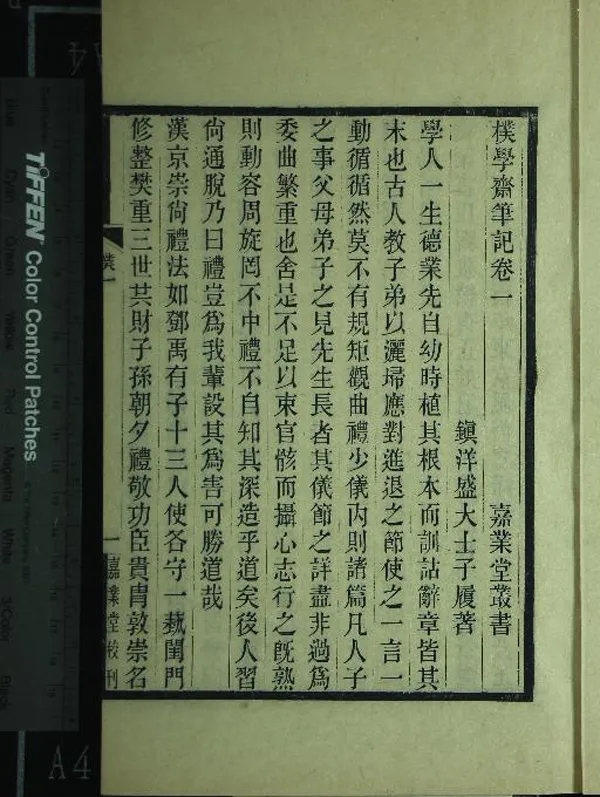 樸學齋筆記卷一
嘉業堂叢書
鎭洋盛大士子履著
學人一生德業先自幼時植其根本而訓詁辭章皆其
末也古人教子弟以灑埽應對進退之節使之一言一
動循循然莫不有規矩觀曲禮少儀內則諸篇凡人子
之事父母弟子之見先生長者其儀節之詳盡非過爲
委曲繁重也舍是不足以束官骸而攝心志行之旣熟
則動容周旋罔不中禮不自知其深造乎道矣後人習
尙通脫乃曰禮豈爲我輩設其爲害可勝道哉
漢京崇尙禮法如鄧禹有子十三人使各守一藝閨門
修整樊重三世共財子孫朝夕禮敬功臣貴胄敦崇名
樸一
一
嘉業堂校刊
TIFFEN Color Control Patches
A4